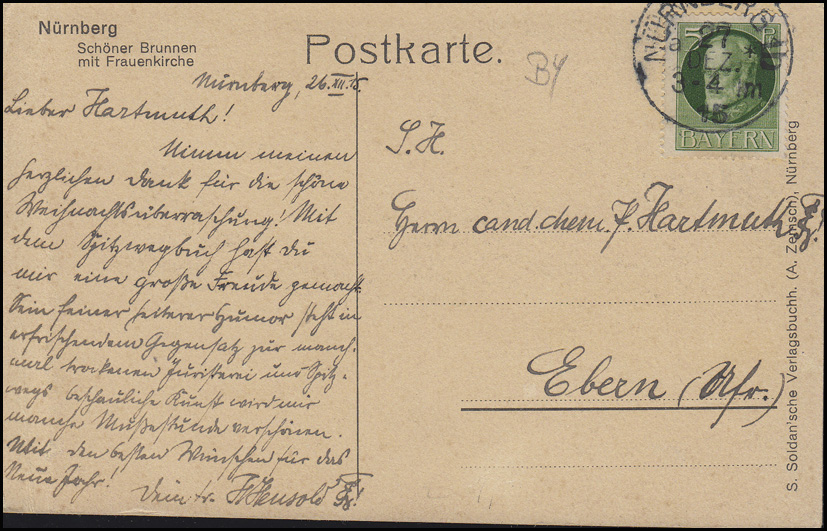 Nürnberg
Schöner Brunnen
mit Frauenkirche
Postkarte.
B4
NÜRNBERG
27
DEZ.
3-4
15
5 P
BAYERN
Nürnberg, 26.XII.15.
Lieber Hartmuth!
Nimm meinen
herzlichen Dank für die schöne
Weihnachtsüberraschung! Mit
dem Spitzwegbuch hast du
mir eine große Freude gemacht.
Sein feiner heiterer Humor steht in
erfrischendem Gegensatz zur manch-
mal trockenen Juristerei und Spitz-
wegs beschauliche Kunst wird mir
manche Mußestunde verschönen.
Mit den besten Wünschen für das
Neue Jahr!
Dein tr. H. Hensold
S. H.
Herrn cand. chem. P. Hartmuth
Ebern (Ufr.)
S. Soldan'sche Verlagsbuchh. (A. Zemsch), Nürnberg